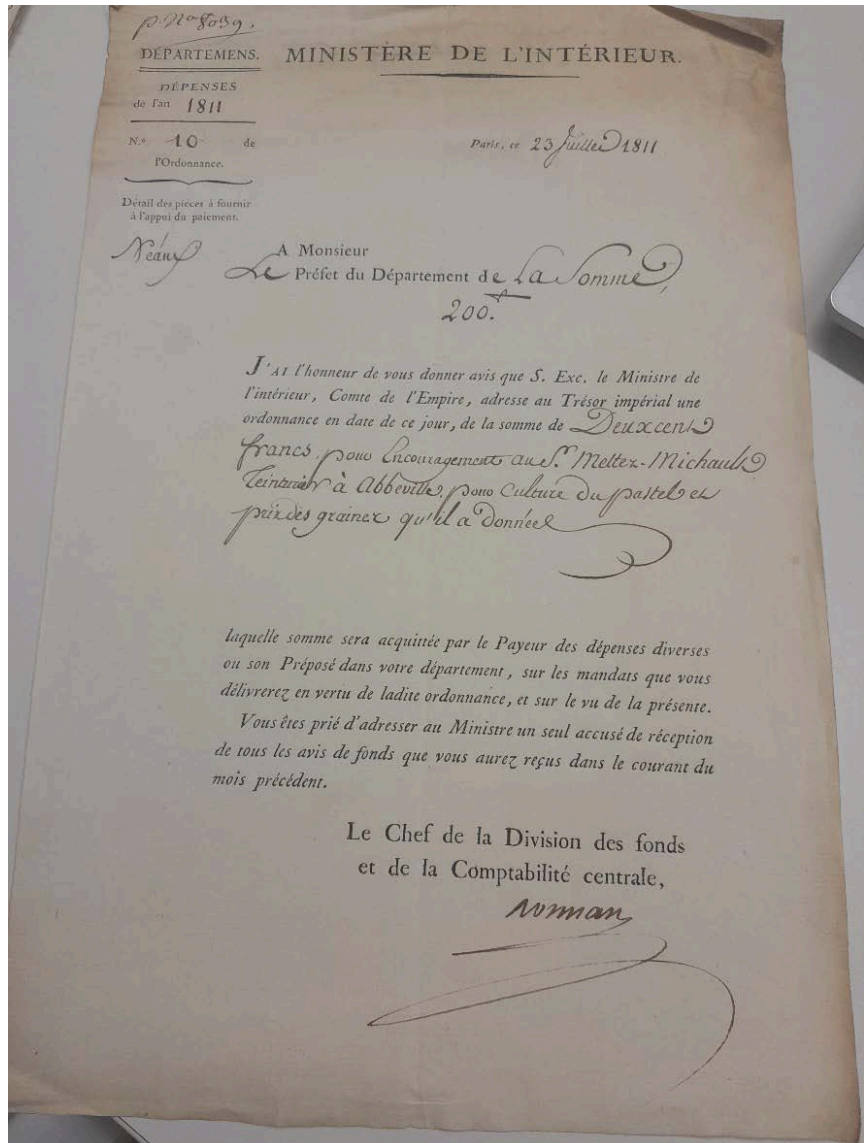 p. N° 8039.
DÉPARTEMENS.
MINISTÈRE DE L'INTÉRIEUR.
DÉPENSES
de l'an 1811
N.° 10 de
l'Ordonnance.
Paris, ce 23 Juillet 1811
Détail des pièces à fournir
à l'appui du paiement.
Néant
A Monsieur
Le Préfet du Département de La Somme,
200.
J'AI l'honneur de vous donner avis que S. Exc. le Ministre de
l'intérieur, Comte de l'Empire, adresse au Trésor impérial une
ordonnance en date de ce jour, de la somme de Deux cent
francs, pour Encouragement au Sr. Mettez-Michault
Teinturier à Abbeville, pour Culture du pastel et
prix des graines qu'il a Données
laquelle somme sera acquittée par le Payeur des dépenses diverses
ou son Préposé dans votre département, sur les mandats que vous
délivrerez en vertu de ladite ordonnance, et sur le vu de la présente.
Vous êtes prié d'adresser au Ministre un seul accusé de réception
de tous les avis de fonds que vous aurez reçus dans le courant du
mois précédent.
Le Chef de la Division des fonds
et de la Comptabilité centrale,